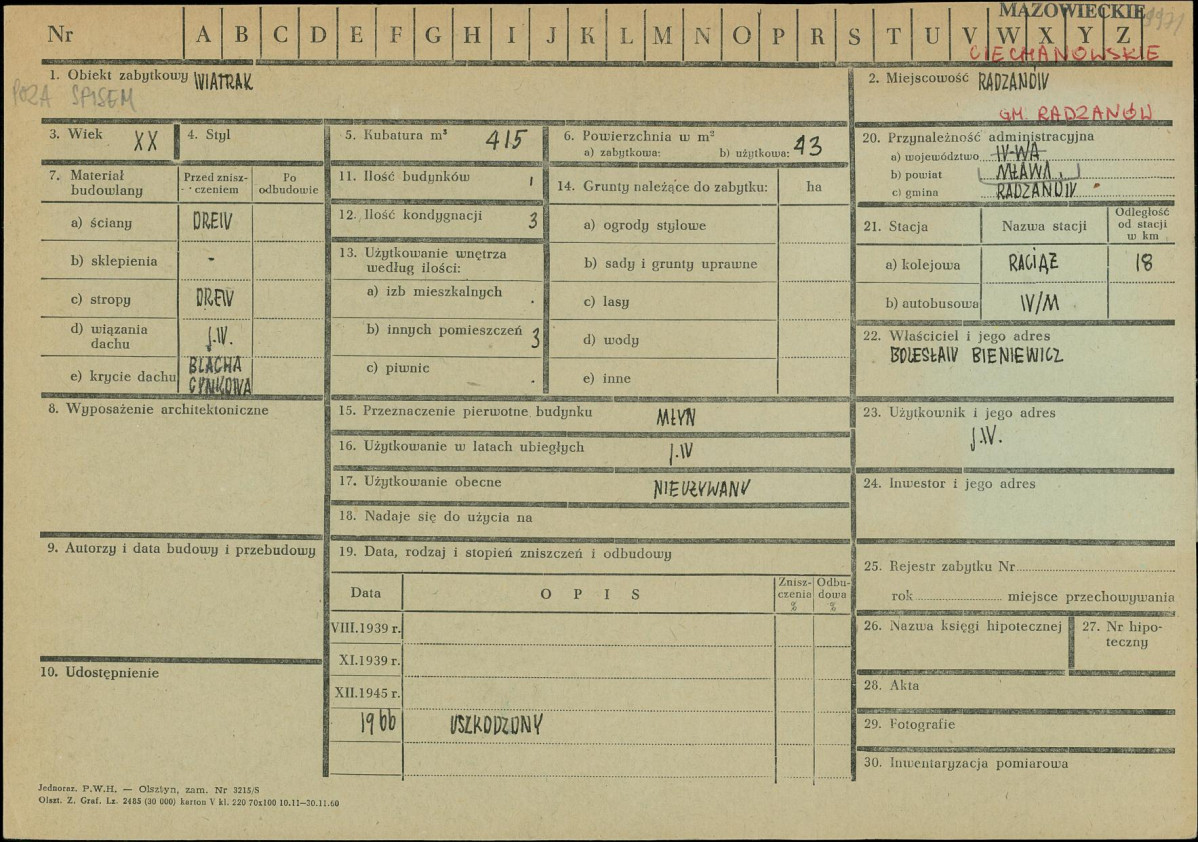 MAZOWIECKIE
1971
Nr A B C D E F G H I J K L M N O P R S T U V W X Y Z
CIECHANOWSKIE
1. Obiekt zabytkowy WIATRAK
POZA SPISEM
2. Miejscowość RADZANÓW
GM. RADZANÓW
3. Wiek XX
4. Styl
5. Kubatura m³ 415
6. Powierzchnia w m²
a) zabytkowa: b) użytkowa: 43
7. Materiał budowlany
Przed zniszczeniem
Po odbudowie
a) ściany DREW
b) sklepienia -
c) stropy DREW
d) wiązania dachu J.W.
e) krycie dachu BLACHA CYNKOWA
8. Wyposażenie architektoniczne
9. Autorzy i data budowy i przebudowy
10. Udostępnienie
11. Ilość budynków 1
12. Ilość kondygnacji 3
13. Użytkowanie wnętrza
według ilości:
a) izb mieszkalnych .
b) innych pomieszczeń 3
c) piwnic .
14. Grunty należące do zabytku: ha
a) ogrody stylowe
b) sady i grunty uprawne
c) lasy
d) wody
e) inne
15. Przeznaczenie pierwotne budynku MŁYN
16. Użytkowanie w latach ubiegłych J.W
17. Użytkowanie obecne NIEUŻYWANY
18. Nadaje się do użycia na
19. Data, rodzaj i stopień zniszczeń i odbudowy
Data OPIS Zniszczenia % Odbudowa %
VIII.1939 r.
XI.1939 r.
XII.1945 r.
1966 USZKODZONY
20. Przynależność administracyjna
a) województwo W-WA
b) powiat MŁAWA
c) gmina RADZANÓW
21. Stacja Nazwa stacji Odległość od stacji w km
a) kolejowa RACIĄŻ 18
b) autobusowa W/M
22. Właściciel i jego adres
BOLESŁAW BIENIEWICZ
23. Użytkownik i jego adres
J.W.
24. Inwestor i jego adres
25. Rejestr zabytku Nr
rok miejsce przechowywania
26. Nazwa księgi hipotecznej
27. Nr hipoteczny
28. Akta
29. Fotografie
30. Inwentaryzacja pomiarowa
Jednoraz. P.W.H. — Olsztyn, zam. Nr 3215/S
Olszt. Z. Graf. Lz. 2485 (30 000) karton V kl. 220 70x100 10.11—30.11.60